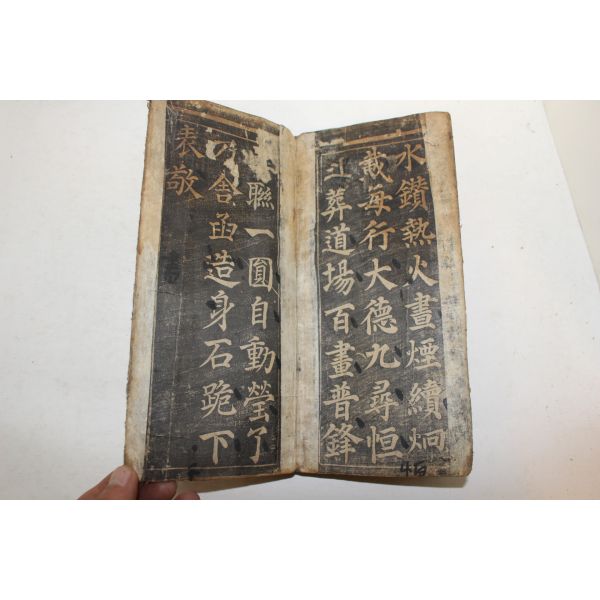 水鑚熱火畫煙續炯
哉每行大德九尋恒
葬道場百畫普鋒
聯一圓自動瑩了
舍函造身石跪下
表敬